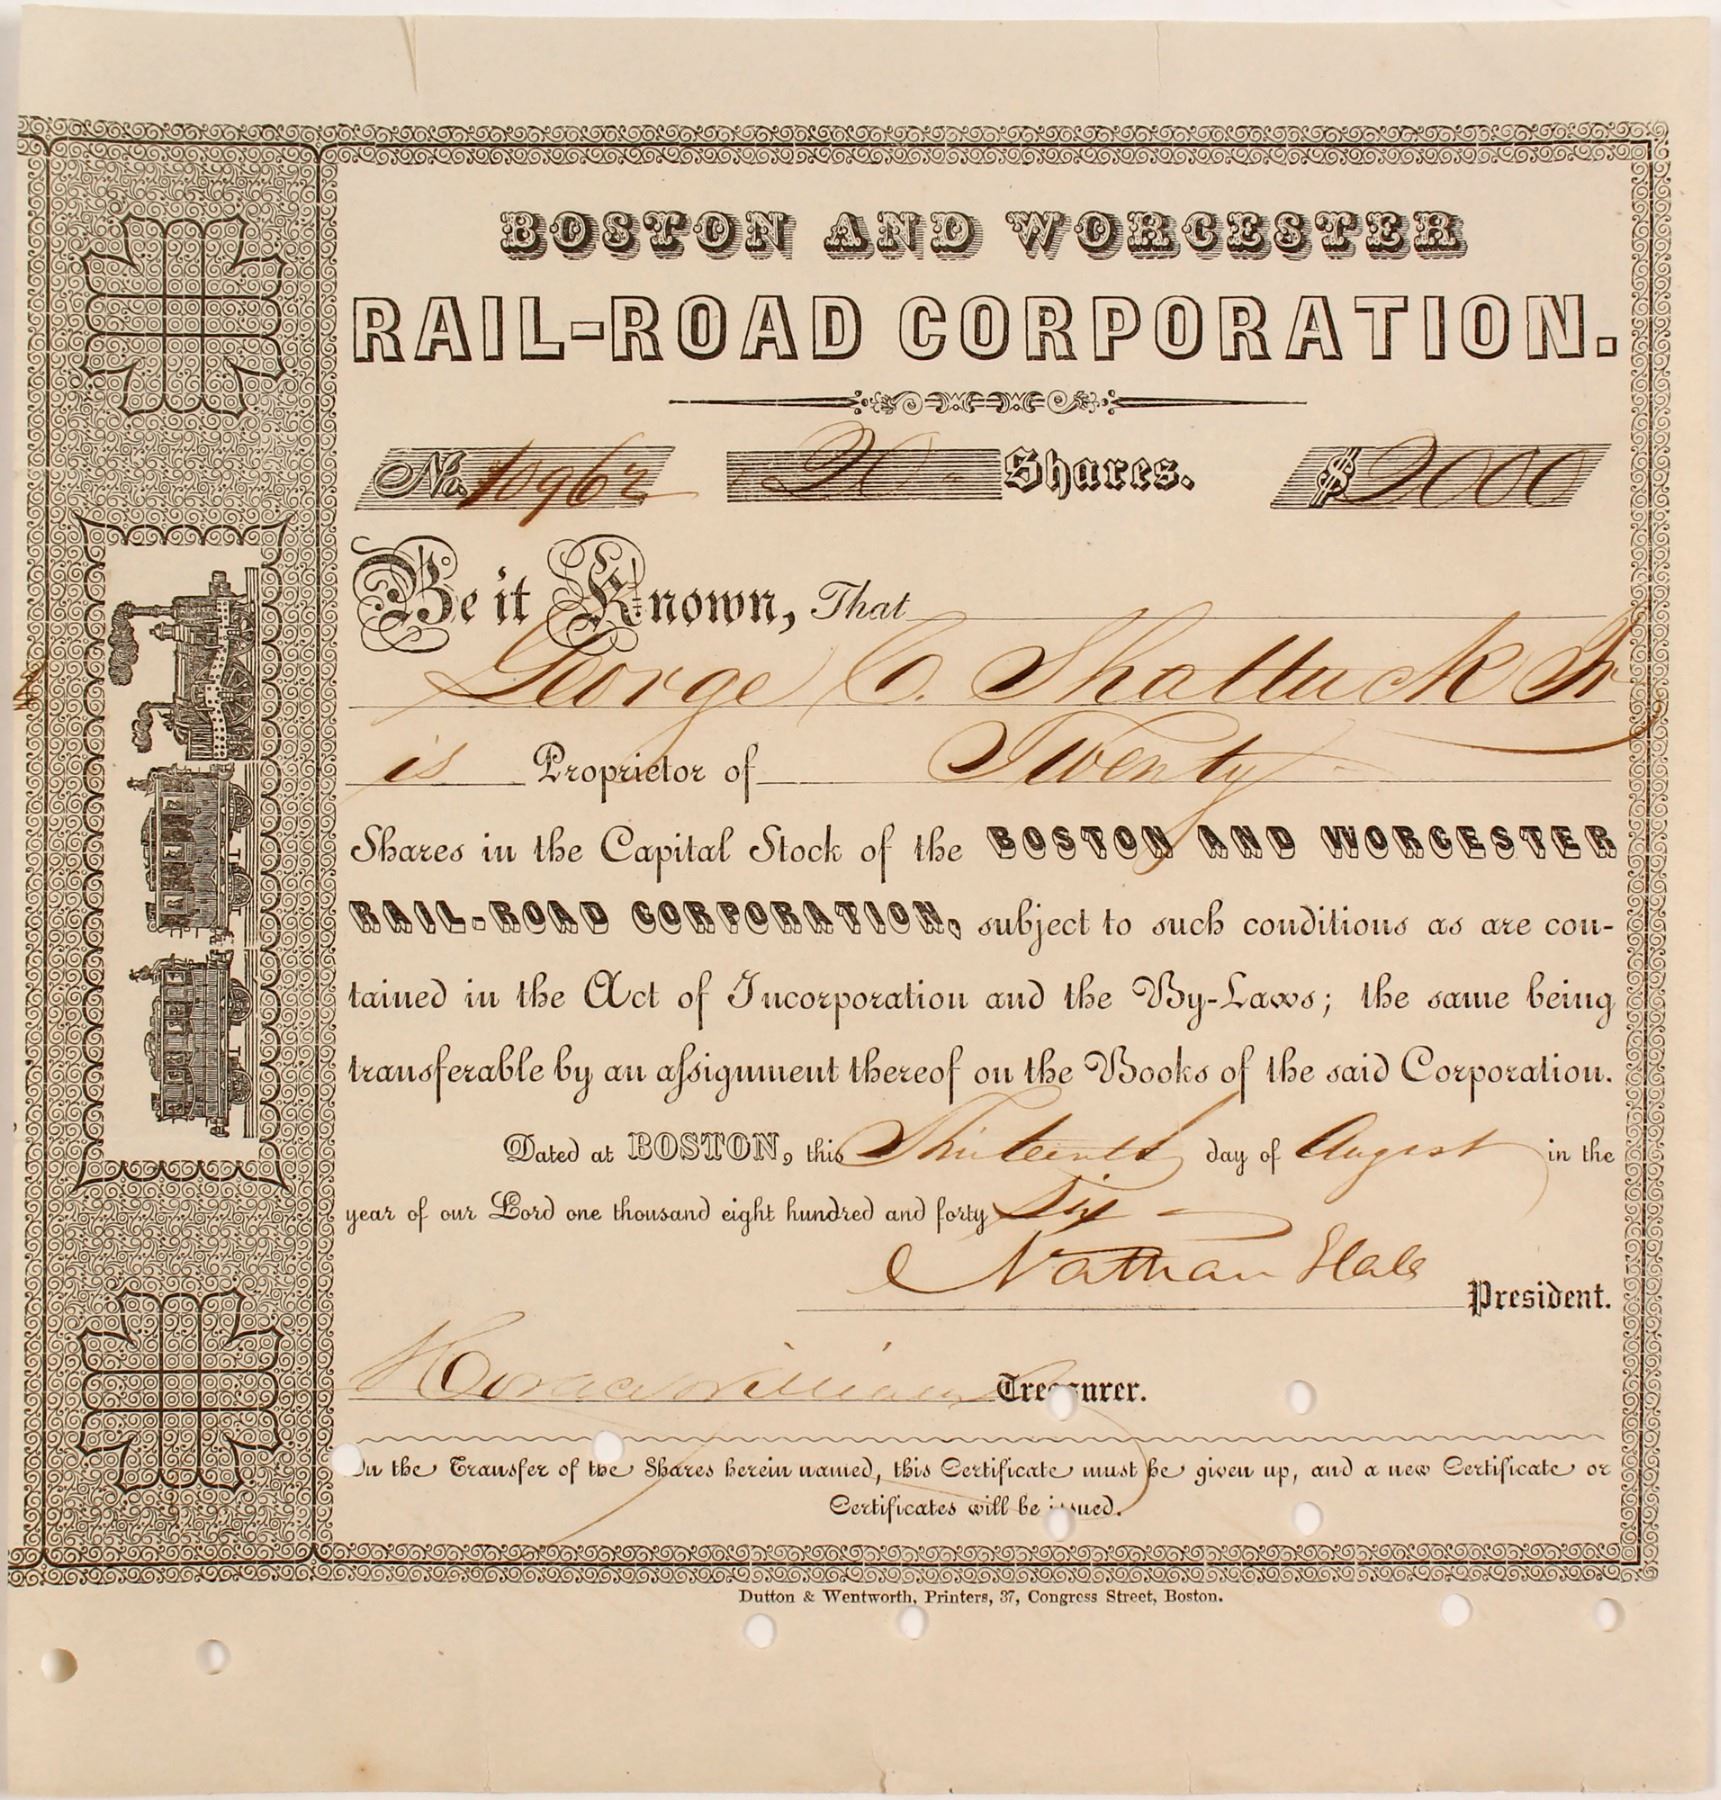 BOSTON AND WORCESTER
RAIL-ROAD CORPORATION.
No. 10962 20 Shares. $ 2000
Be it Known, That
George C. Shattuck Jr
is Proprietor of Twenty
Shares in the Capital Stock of the BOSTON AND WORCESTER
RAIL-ROAD CORPORATION, subject to such conditions as are con-
tained in the Act of Incorporation and the By-Laws; the same being
transferable by an assignment thereof on the Books of the said Corporation.
Dated at BOSTON, this Thirteenth day of August in the
year of our Lord one thousand eight hundred and forty Six
Nathan Hale President.
Horace Williams Treasurer.
In the Transfer of the Shares herein named, this Certificate must be given up, and a new Certificate or
Certificates will be issued.
Dutton & Wentworth, Printers, 37, Congress Street, Boston.